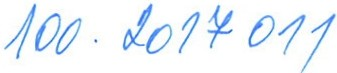 100. 2017 011